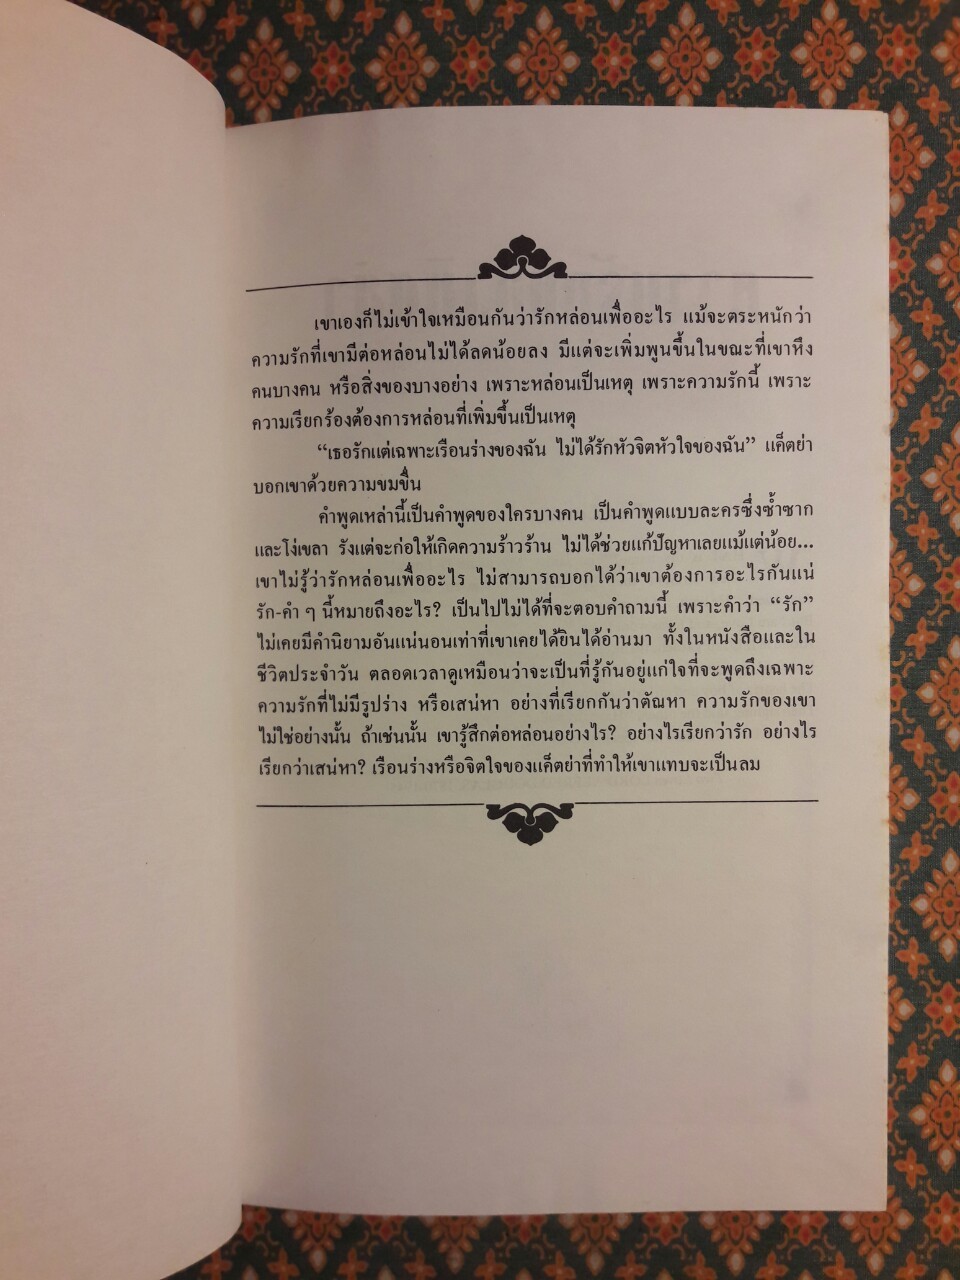 เขาเองก็ไม่เข้าใจเหมือนกันว่ารักหล่อนเพื่ออะไร แม้จะตระหนักว่า
ความรักที่เขามีต่อหล่อนไม่ได้ลดน้อยลง มีแต่จะเพิ่มพูนขึ้นในขณะที่เขาหึง
คนบางคน หรือสิ่งของบางอย่าง เพราะหล่อนเป็นเหตุ เพราะความรักนี้ เพราะ
ความเรียกร้องต้องการหล่อนที่เพิ่มขึ้นเป็นเหตุ
“เธอรักแต่เฉพาะเรือนร่างของฉัน ไม่ได้รักหัวจิตหัวใจของฉัน” แค็ตย่า
บอกเขาด้วยความขมขื่น
คำพูดเหล่านี้เป็นคำพูดของใครบางคน เป็นคำพูดแบบละครซึ่งซ้ำซาก
และโง่เขลา รังแต่จะก่อให้เกิดความร้าวร้าน ไม่ได้ช่วยแก้ปัญหาเลยแม้แต่น้อย...
เขาไม่รู้ว่ารักหล่อนเพื่ออะไร ไม่สามารถบอกได้ว่าเขาต้องการอะไรกันแน่
รัก-คำ ๆ นี้หมายถึงอะไร? เป็นไปไม่ได้ที่จะตอบคำถามนี้ เพราะคำว่า “รัก”
ไม่เคยมีคำนิยามอันแน่นอนเท่าที่เขาเคยได้ยินได้อ่านมา ทั้งในหนังสือและใน
ชีวิตประจำวัน ตลอดเวลาดูเหมือนว่าจะเป็นที่รู้กันอยู่แก่ใจที่จะพูดถึงเฉพาะ
ความรักที่ไม่มีรูปร่าง หรือเสน่หา อย่างที่เรียกกันว่าตัณหา ความรักของเขา
ไม่ใช่อย่างนั้น ถ้าเช่นนั้น เขารู้สึกต่อหล่อนอย่างไร? อย่างไรเรียกว่ารัก อย่างไร
เรียกว่าเสน่หา? เรือนร่างหรือจิตใจของแค็ตย่าที่ทำให้เขาแทบจะเป็นลม